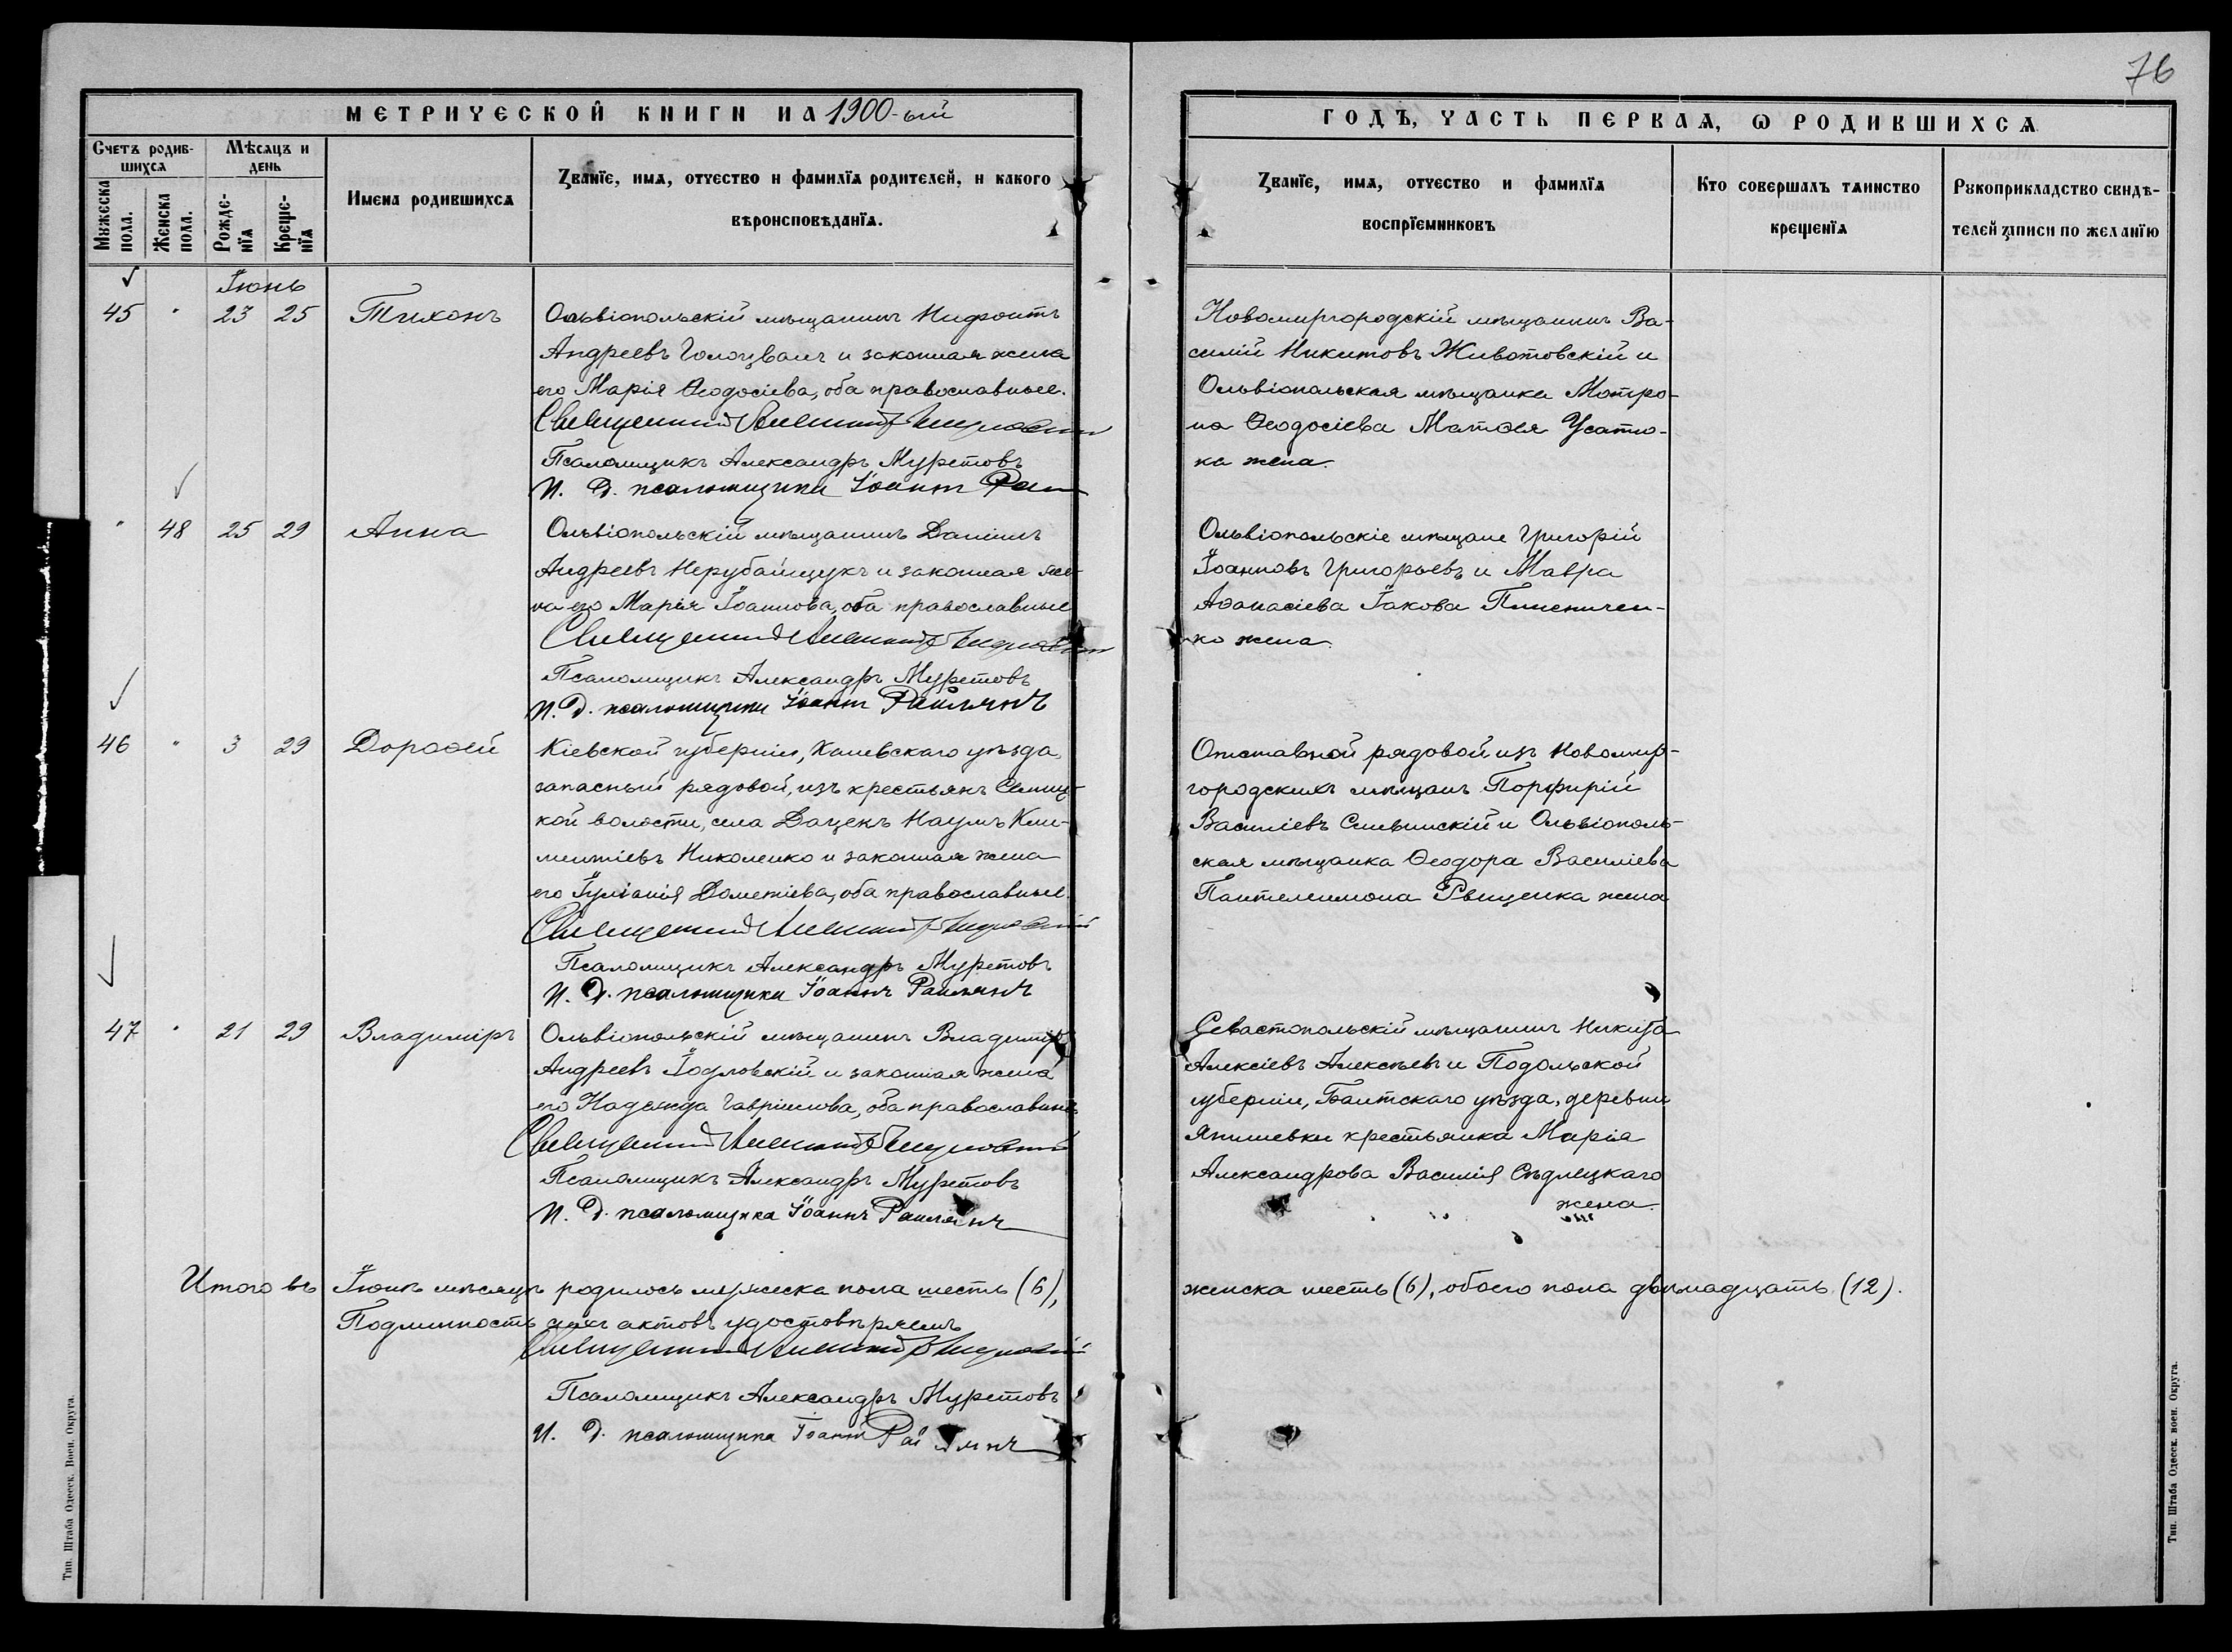 76
МЕТРИЧЕСКОЙ КНИГИ НА 1900-ый
ГОДЪ, ЧАСТЬ ПЕРВАЯ, Ѡ РОДИВШИХСЯ
Счетъ родив-
шихся
Мѣсяцъ и
день
Мужеска
пола.
Женска
пола.
Рожде-
нїя
Креще-
нїя
Имена родившихся
Званїе, имя, отчество и фамилїя родителей, и какого
вѣроисповѣданїя.
Званїе, имя, отчество и фамилїя
воспрїемниковъ
Кто совершалъ таинство
крещенїя
Рукоприкладство свидѣ-
телей записи по желанїю
Іюнь
45 " 23 25 Тихонъ
Ольвіопольскій мѣщанинъ Нифонтъ
Андреевъ и законная жена
его Марія Ѳеодосіева, оба православные.
Священникъ
Псаломщикъ Александръ Муретовъ
И. Д. псаломщика Іоаннъ
Новомиргородскій мѣщанинъ Ва-
силій Никитовъ Животовскій и
Ольвіопольская мѣщанка Мотро-
на Ѳеодосіева Матѳея Усато-
ка жена.
" 48 25 29 Анна
Ольвіопольскій мѣщанинъ Даніилъ
Андреевъ Нерубайщукъ и законная же-
на его Марія Іоаннова, оба православные
Священникъ
Псаломщикъ Александръ Муретовъ
И. Д. псаломщика Іоаннъ Раилянъ
Ольвіопольскіе мѣщане Григорій
Іоанновъ Григорьевъ и Мавра
Аѳанасіева Іакова Пшеничен-
ко жена.
46 " 3 29 Дороѳей
Кіевской губерніи, Каневскаго уѣзда,
запасный рядовой, изъ крестьянъ
кой волости, села Даценъ Наумъ Кли-
ментіевъ Николенко и законная жена
его Іуліанія Дометіева, оба православные.
Священникъ
Псаломщикъ Александръ Муретовъ
И. Д. псаломщика Іоаннъ Раилянъ
Отставной рядовой изъ Новомир-
городскихъ мѣщанъ Порфирій
Василіевъ и Ольвіополь-
ская мѣщанка Ѳеодора Василіева
Пантелеимона жена
47 " 21 29 Владиміръ
Ольвіопольскій мѣщанинъ Владиміръ
Андреевъ Іодловскій и законная жена
его Надежда Гавріилова, оба православные
Священникъ
Псаломщикъ Александръ Муретовъ
И. Д. псаломщика Іоаннъ Раилянъ
Севастопольскій мѣщанинъ Никита
Алексіевъ Алексѣевъ и Подольской
губерніи, Балтскаго уѣзда, деревни
крестьянка Марія
Александрова Василія Сѣдлецкаго
жена.
Итого въ Іюнѣ мѣсяцѣ родилось мужеска пола шесть (6),
женска шесть (6), обоего пола двѣнадцать (12).
Подлинность сихъ актовъ удостовѣряемъ
Священникъ
Псаломщикъ Александръ Муретовъ
И. Д. псаломщика Іоаннъ Раилянъ
Тип. Штаба Одесск. Воен. Округа.
Тип. Штаба Одесск. воен. Округа.